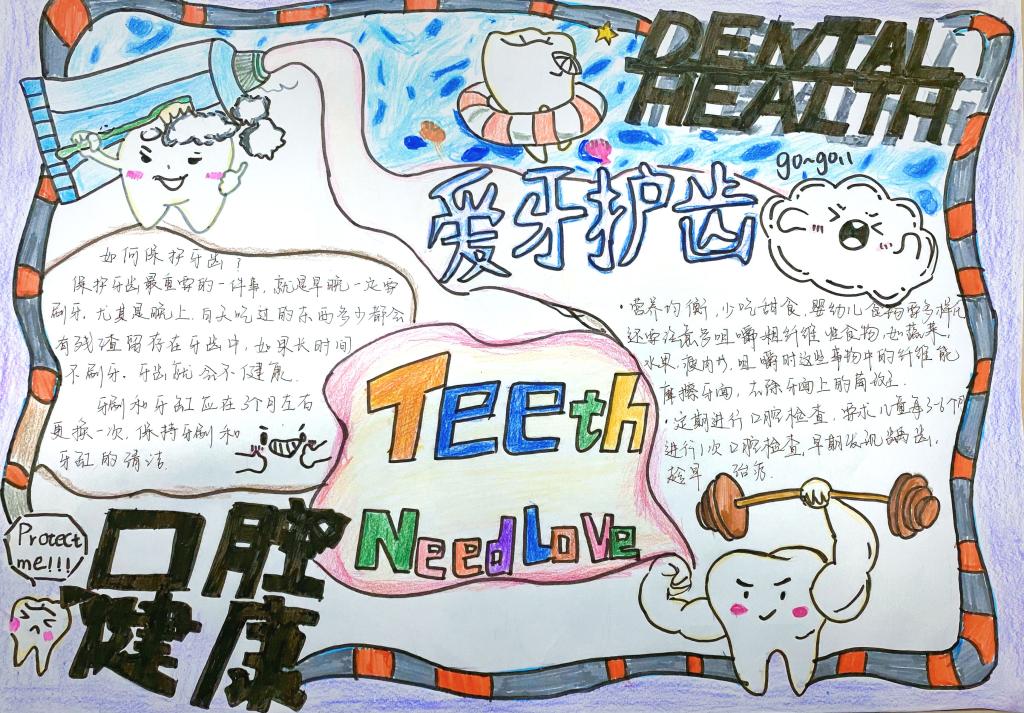 DENTAL
HEALTH
爱牙护齿
go~go!!
如何保护牙齿?
保护牙齿最重要的一件事,就是早晚一定要
刷牙.尤其是晚上.白天吃过的东西多少都会
有残渣留存在牙齿中,如果长时间
不刷牙.牙齿就会不健康.
牙刷和牙缸应在3个月左右
更换一次.保持牙刷和
牙缸的清洁.
·营养均衡,少吃甜食.婴幼儿食物要多样化
还要注意多咀嚼粗纤维性食物,如蔬菜,
水果.瘦肉为.咀嚼时这些事物中的纤维能
摩擦牙面,去除牙面上的菌斑.
·定期进行口腔检查.要求儿童每3-6个月
进行1次口腔检查,早期发现龋齿,
趁早 治疗.
TEEth
NeedLoVe
口腔
健康
Protect
me!!!